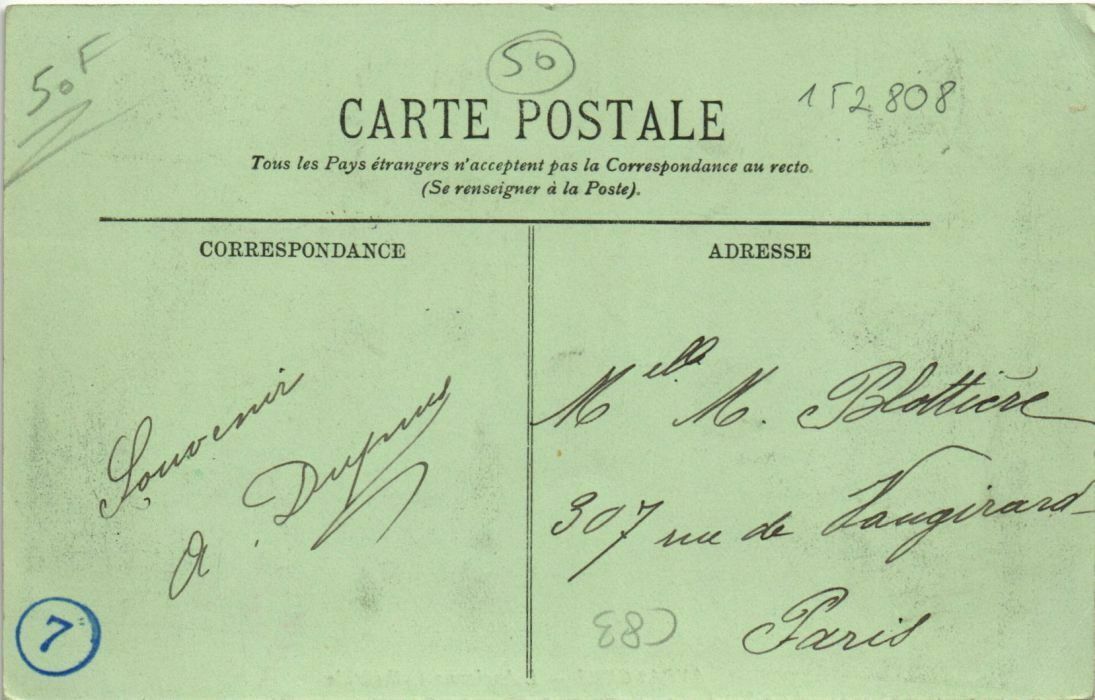 50F
50
152808
CARTE POSTALE
Tous les Pays étrangers n'acceptent pas la Correspondance au recto.
(Se renseigner à la Poste).
CORRESPONDANCE
ADRESSE
Souvenir
A. Dupuis
Melle M. Blottière
307 rue de Vaugirard
Paris
7
C83